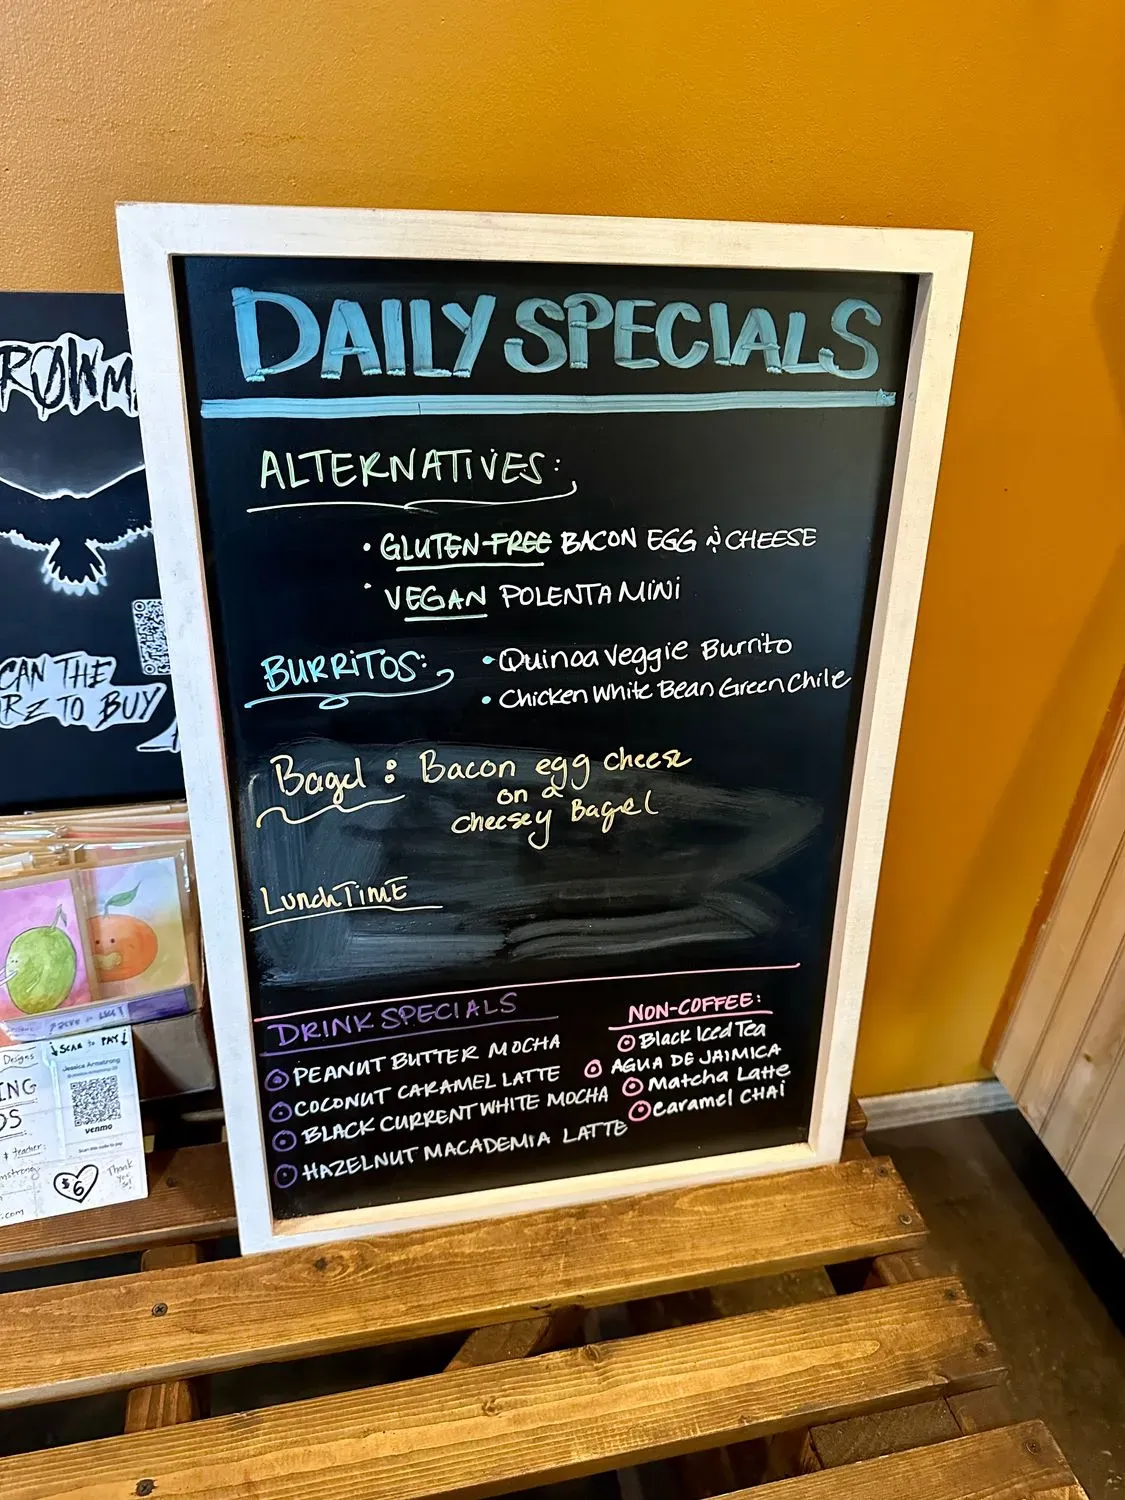 DAILY SPECIALS
ALTERNATIVES:
• GLUTEN-FREE BACON EGG N CHEESE
• VEGAN POLENTA MINI
BURRITOS:
• Quinoa Veggie Burrito
• Chicken White Bean Green Chile
Bagel: Bacon egg cheese
on a
cheesey Bagel
LunchTIME
DRINK SPECIALS
PEANUT BUTTER MOCHA
COCONUT CARAMEL LATTE
BLACK CURRENT WHITE MOCHA
HAZELNUT MACADEMIA LATTE
NON-COFFEE:
Black Iced Tea
AGUA DE JAIMICA
Matcha Latte
Caramel CHAI
CAN THE
TO BUY
SCAN to PAY
Jessica Armstrong
venmo
Scan this code to pay
Designs
& teacher:
$6
Thank
you
so!
.com